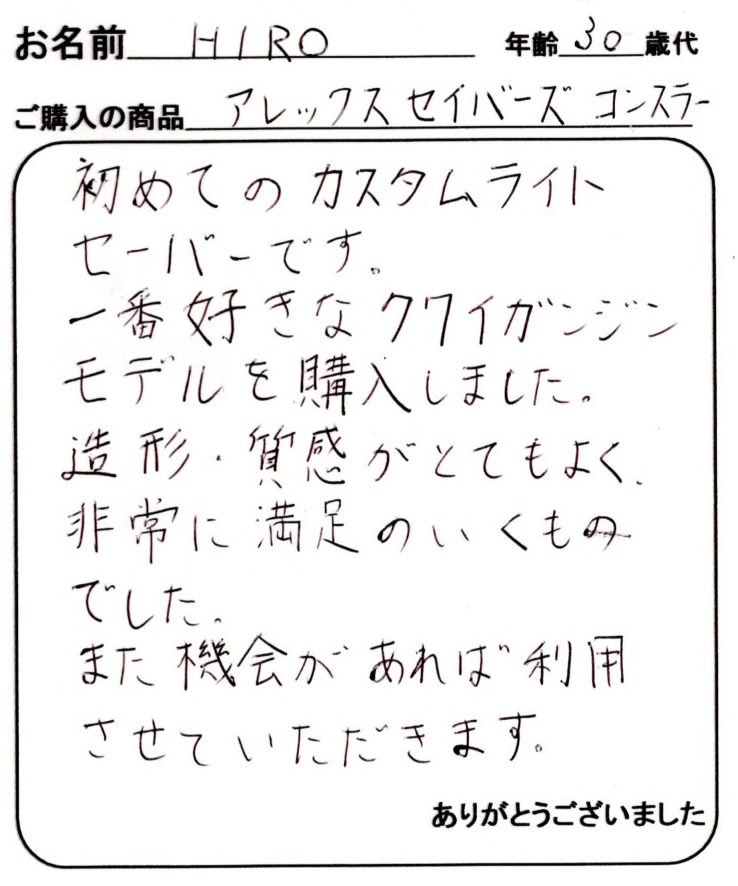 お名前 HIRO 年齢 30 歳代
ご購入の商品 アレックス セイバーズ コンスラー
初めてのカスタムライト
セーバーです。
一番好きなクワイガンジン
モデルを購入しました。
造形・質感がとてもよく、
非常に満足のいくもの
でした。
また機会があれば利用
させていただきます。
ありがとうございました